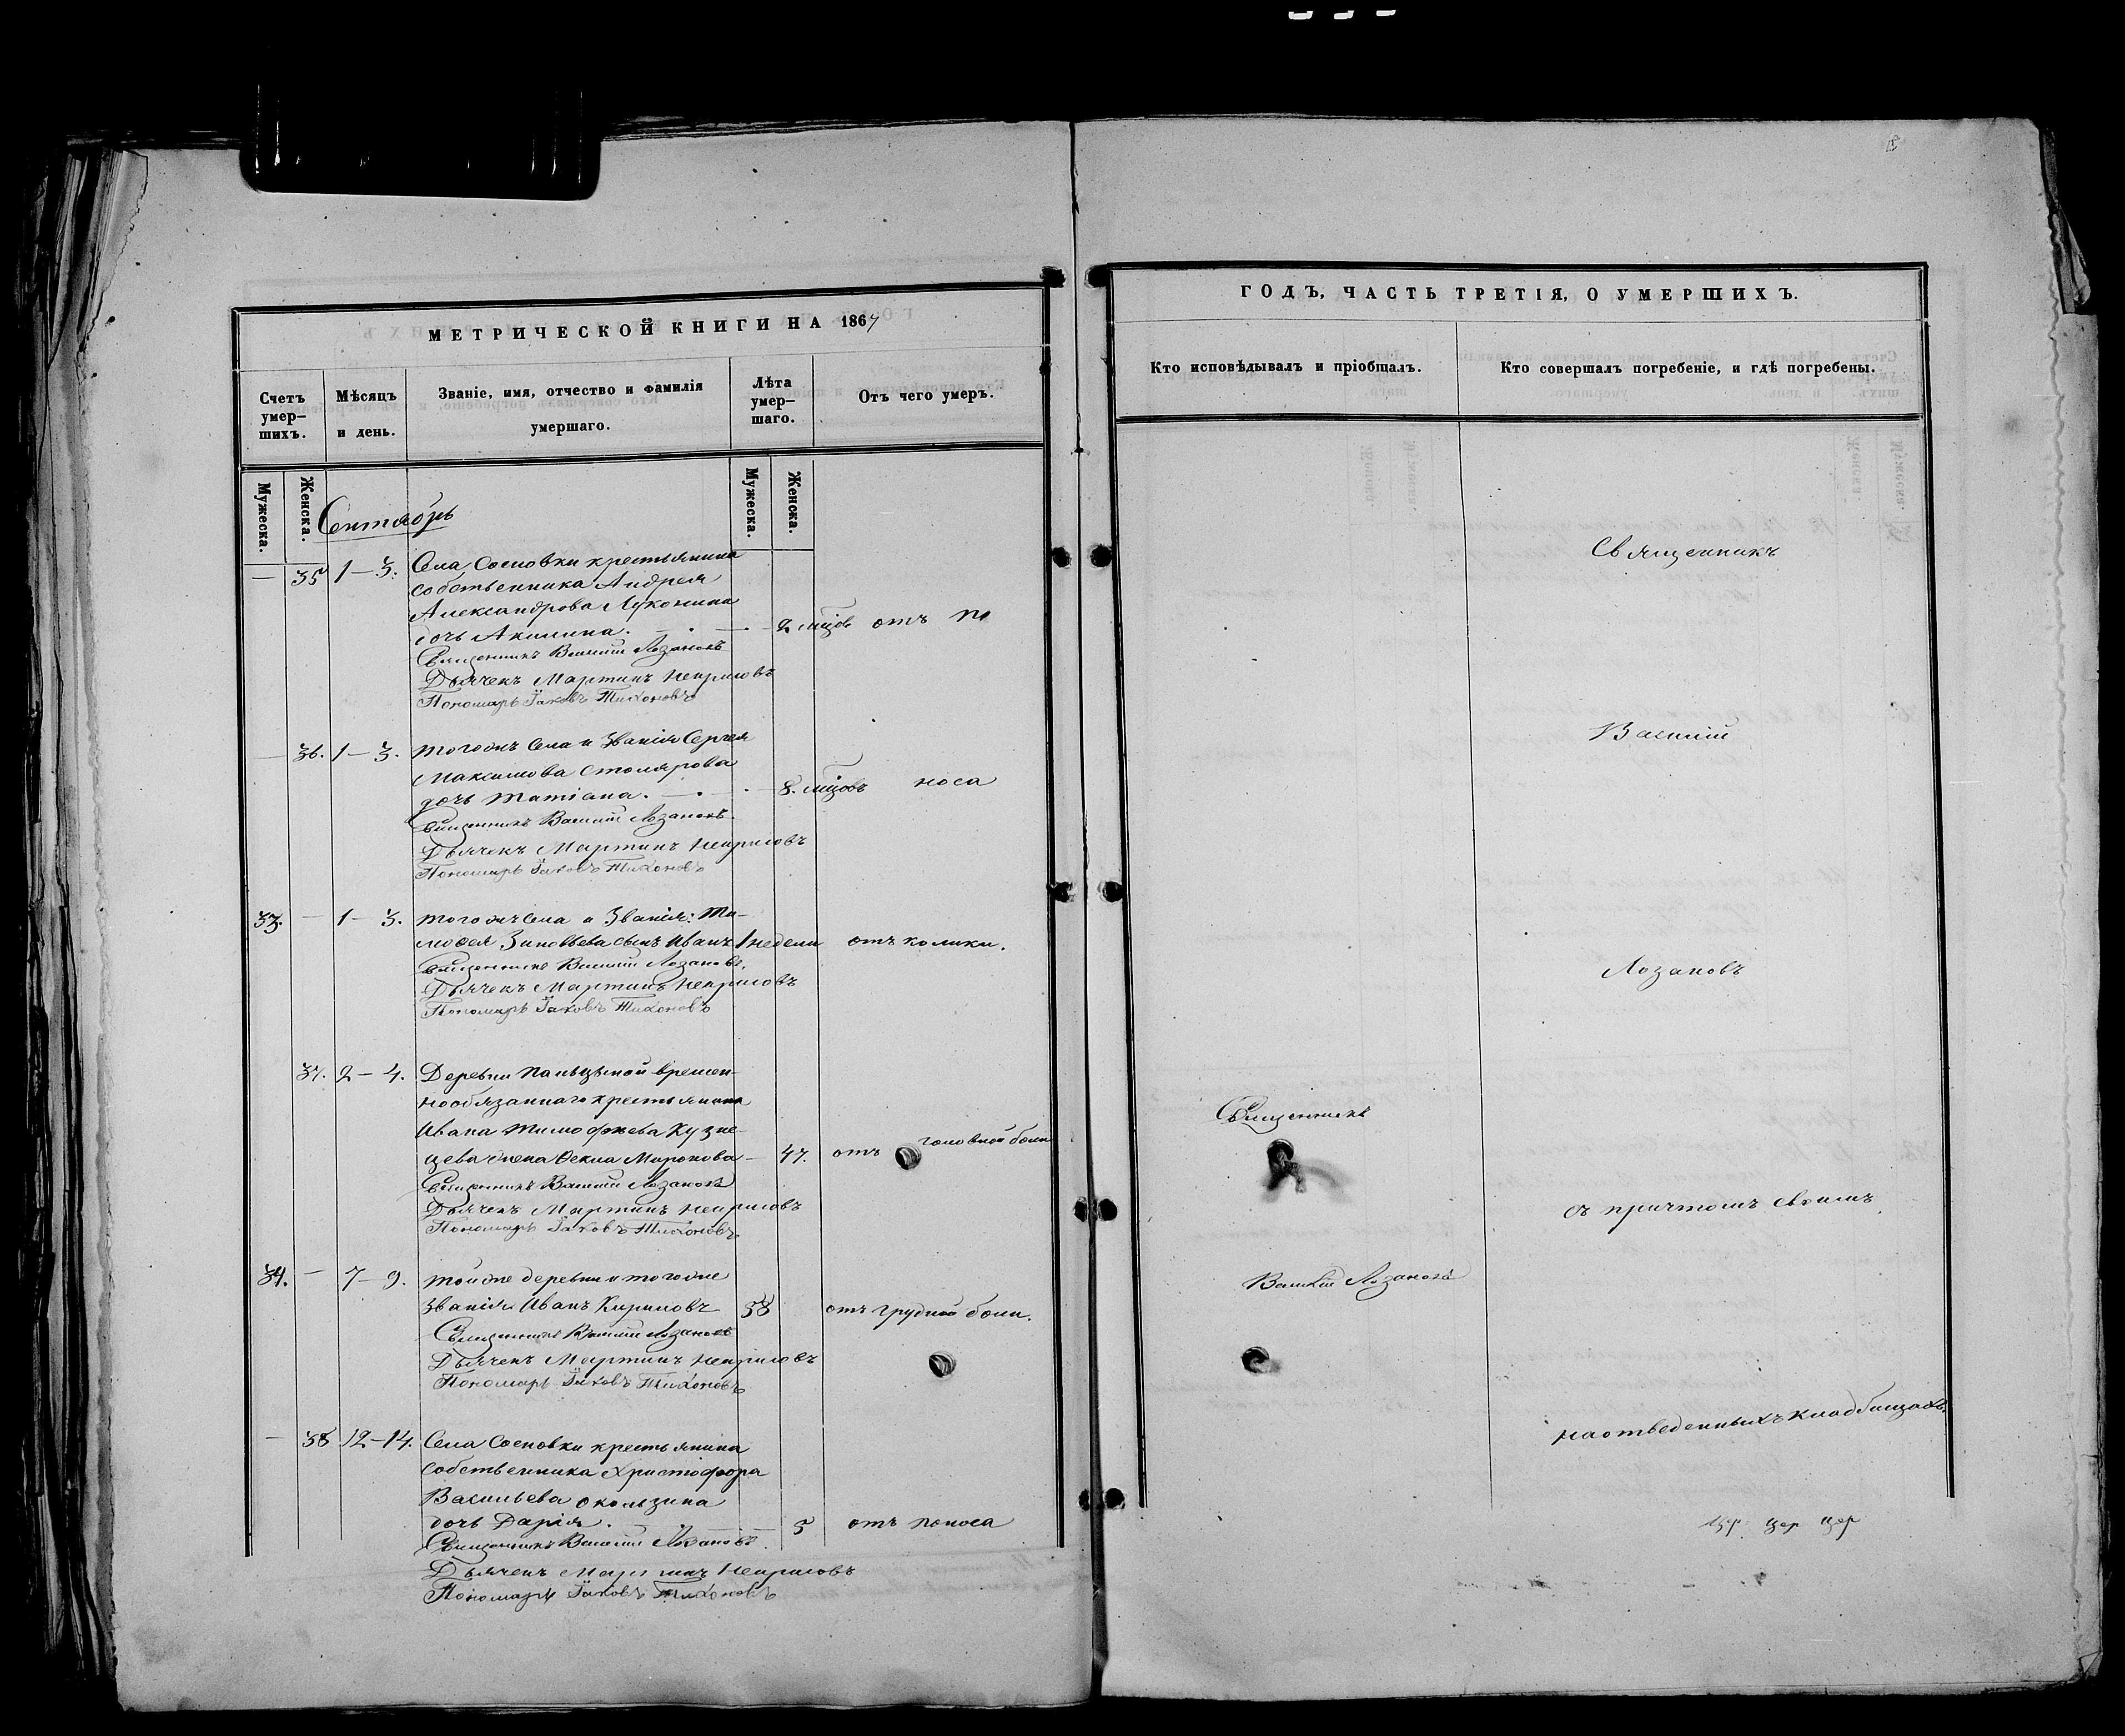 МЕТРИЧЕСКОЙ КНИГИ НА 1867
Счетъ умер-шихъ.
Мѣсяцъ и день.
Званіе, имя, отчество и фамилія умершаго.
Лѣта умер-шаго.
Отъ чего умеръ.
Мужеска.
Женска.
Мужеска.
Женска.
Сентябрь
— 35 1 — 3. Села Сосновки крестьянина
собственника Андрея
Александрова Луконина
дочь Акилина. 2 мцов отъ по
Священникъ Василій Лозановъ
Дьячекъ Мартинъ
Пономарь Іаковъ Тихоновъ
— 36. 1 — 3. Тогожъ Села и Званія Сергея
Максимова Столярова
дочь Татіана. 8. мцовъ носа
Священникъ Василій Лозановъ.
Дьячекъ Мартинъ
Пономарь Іаковъ Тихоновъ
33. — 1 — 3. Тогожъ Села и Званія: Ти-
моѳея Зиновьева сынъ Иванъ 1 недели отъ колики.
Священникъ Василій Лозановъ.
Дьячекъ Мартинъ
Пономарь Іаковъ Тихоновъ
37. 2 — 4. Деревни времен-
нообязаннаго крестьянина
Ивана Тимофѣева Кузне-
цева жена Ѳекла Миронова — 47. отъ головной боли
Священникъ Василій Лозановъ
Дьячекъ Мартинъ
Пономарь Іаковъ Тихоновъ
34. — 7 — 9. Тойже деревни и тогоже
званія Иванъ Кириловъ 58 отъ грудной боли.
Священникъ Василій Лозановъ
Дьячекъ Мартинъ
Пономарь Іаковъ Тихоновъ
— 38 12 — 14. Села Сосновки крестьянина
Собственника Христофора
Васильева Окользина
дочь Дарія. — 5 отъ поноса
Священникъ Василій Лозановъ.
Дьячекъ Мартинъ
Пономарь Іаковъ Тихоновъ
ГОДЪ, ЧАСТЬ ТРЕТІЯ, О УМЕРШИХЪ.
Кто исповѣдывалъ и пріобщалъ.
Кто совершалъ погребеніе, и гдѣ погребены.
Священникъ
Василій
Лозановъ
Священникъ
съ причтомъ своимъ
Василій Лозановъ
на отведенныхъ кладбищахъ.